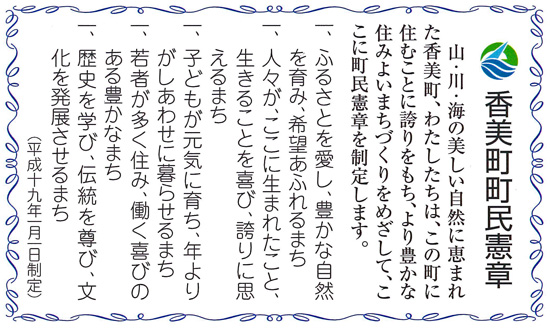 香美町町民憲章
山・川・海の美しい自然に恵まれ
た香美町、わたしたちは、この町に
住むことに誇りをもち、より豊かな
住みよいまちづくりをめざして、こ
こに町民憲章を制定します。
一、ふるさとを愛し、豊かな自然
を育み、希望あふれるまち
一、人々が、ここに生まれたこと、
生きることを喜び、誇りに思
えるまち
一、子どもが元気に育ち、年より
がしあわせに暮らせるまち
一、若者が多く住み、働く喜びの
ある豊かなまち
一、歴史を学び、伝統を尊び、文
化を発展させるまち
（平成十九年一月一日制定）